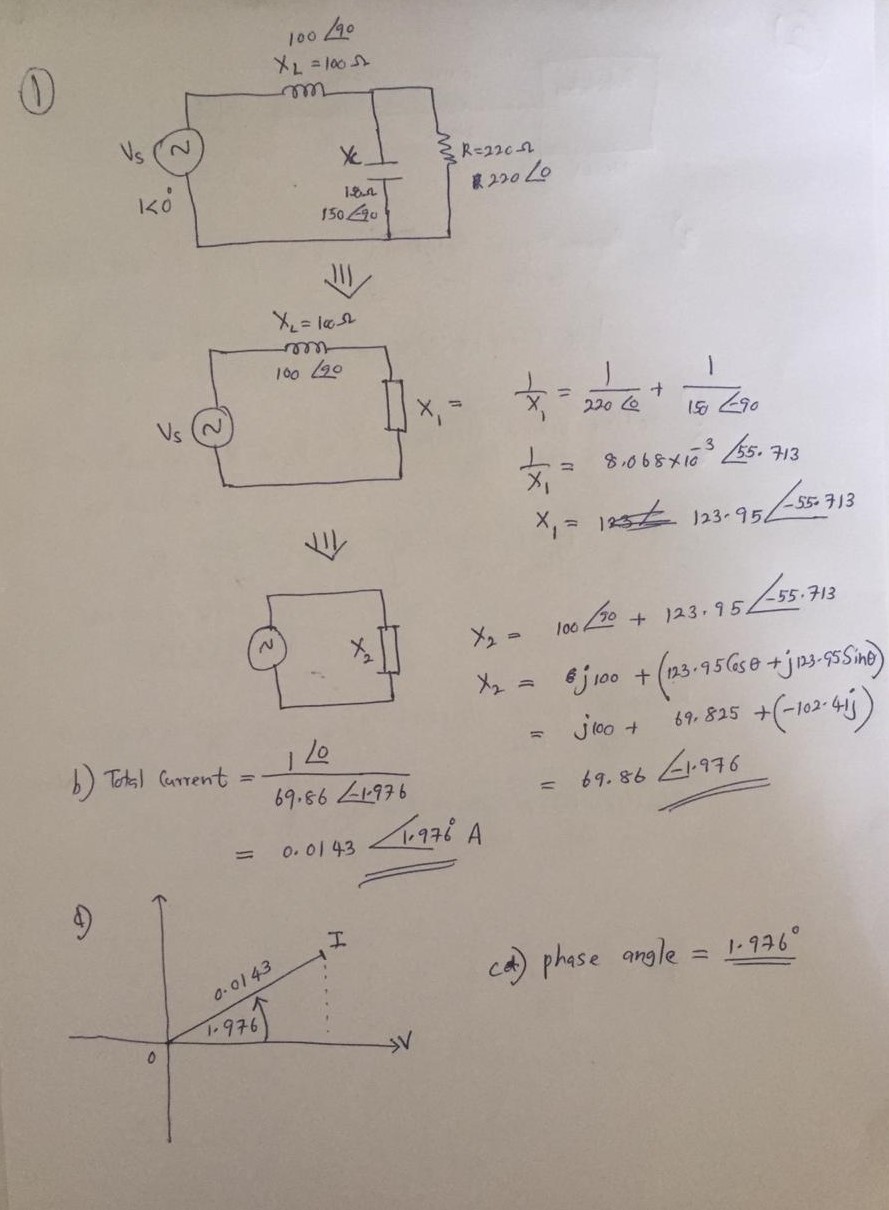 ①
100 ∠90
X_L = 100 Ω
V_S
1<0°
X_C
150 ∠-90
R = 220 Ω
220 ∠0
X_L = 100 Ω
100 ∠90
V_S
X₁ =
1/X₁ = 1/(220 ∠0) + 1/(150 ∠-90)
1/X₁ = 8.068 × 10⁻³ ∠55.713
X₁ = 123.95 ∠-55.713
X₂
X₂ = 100 ∠90 + 123.95 ∠-55.713
X₂ = j100 + (123.95 Cos θ + j123.95 Sin θ)
= j100 + 69.825 + (-102.41j)
= 69.86 ∠-1.976
b) Total Current = 1 ∠0 / 69.86 ∠-1.976
= 0.0143 ∠1.976° A
d)
I
0.0143
1.976
0
V
c) phase angle = 1.976°